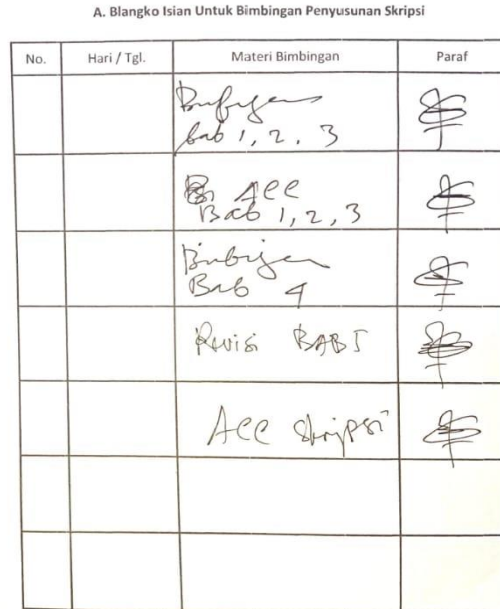 A. Blangko Isian Untuk Bimbingan Penyusunan Skripsi
No. Hari / Tgl. Materi Bimbingan Paraf
Bimbingan
bab 1, 2, 3
ACC
Bab 1, 2, 3
Bimbingan
Bab 4
Revisi BAB 5
ACC Skripsi